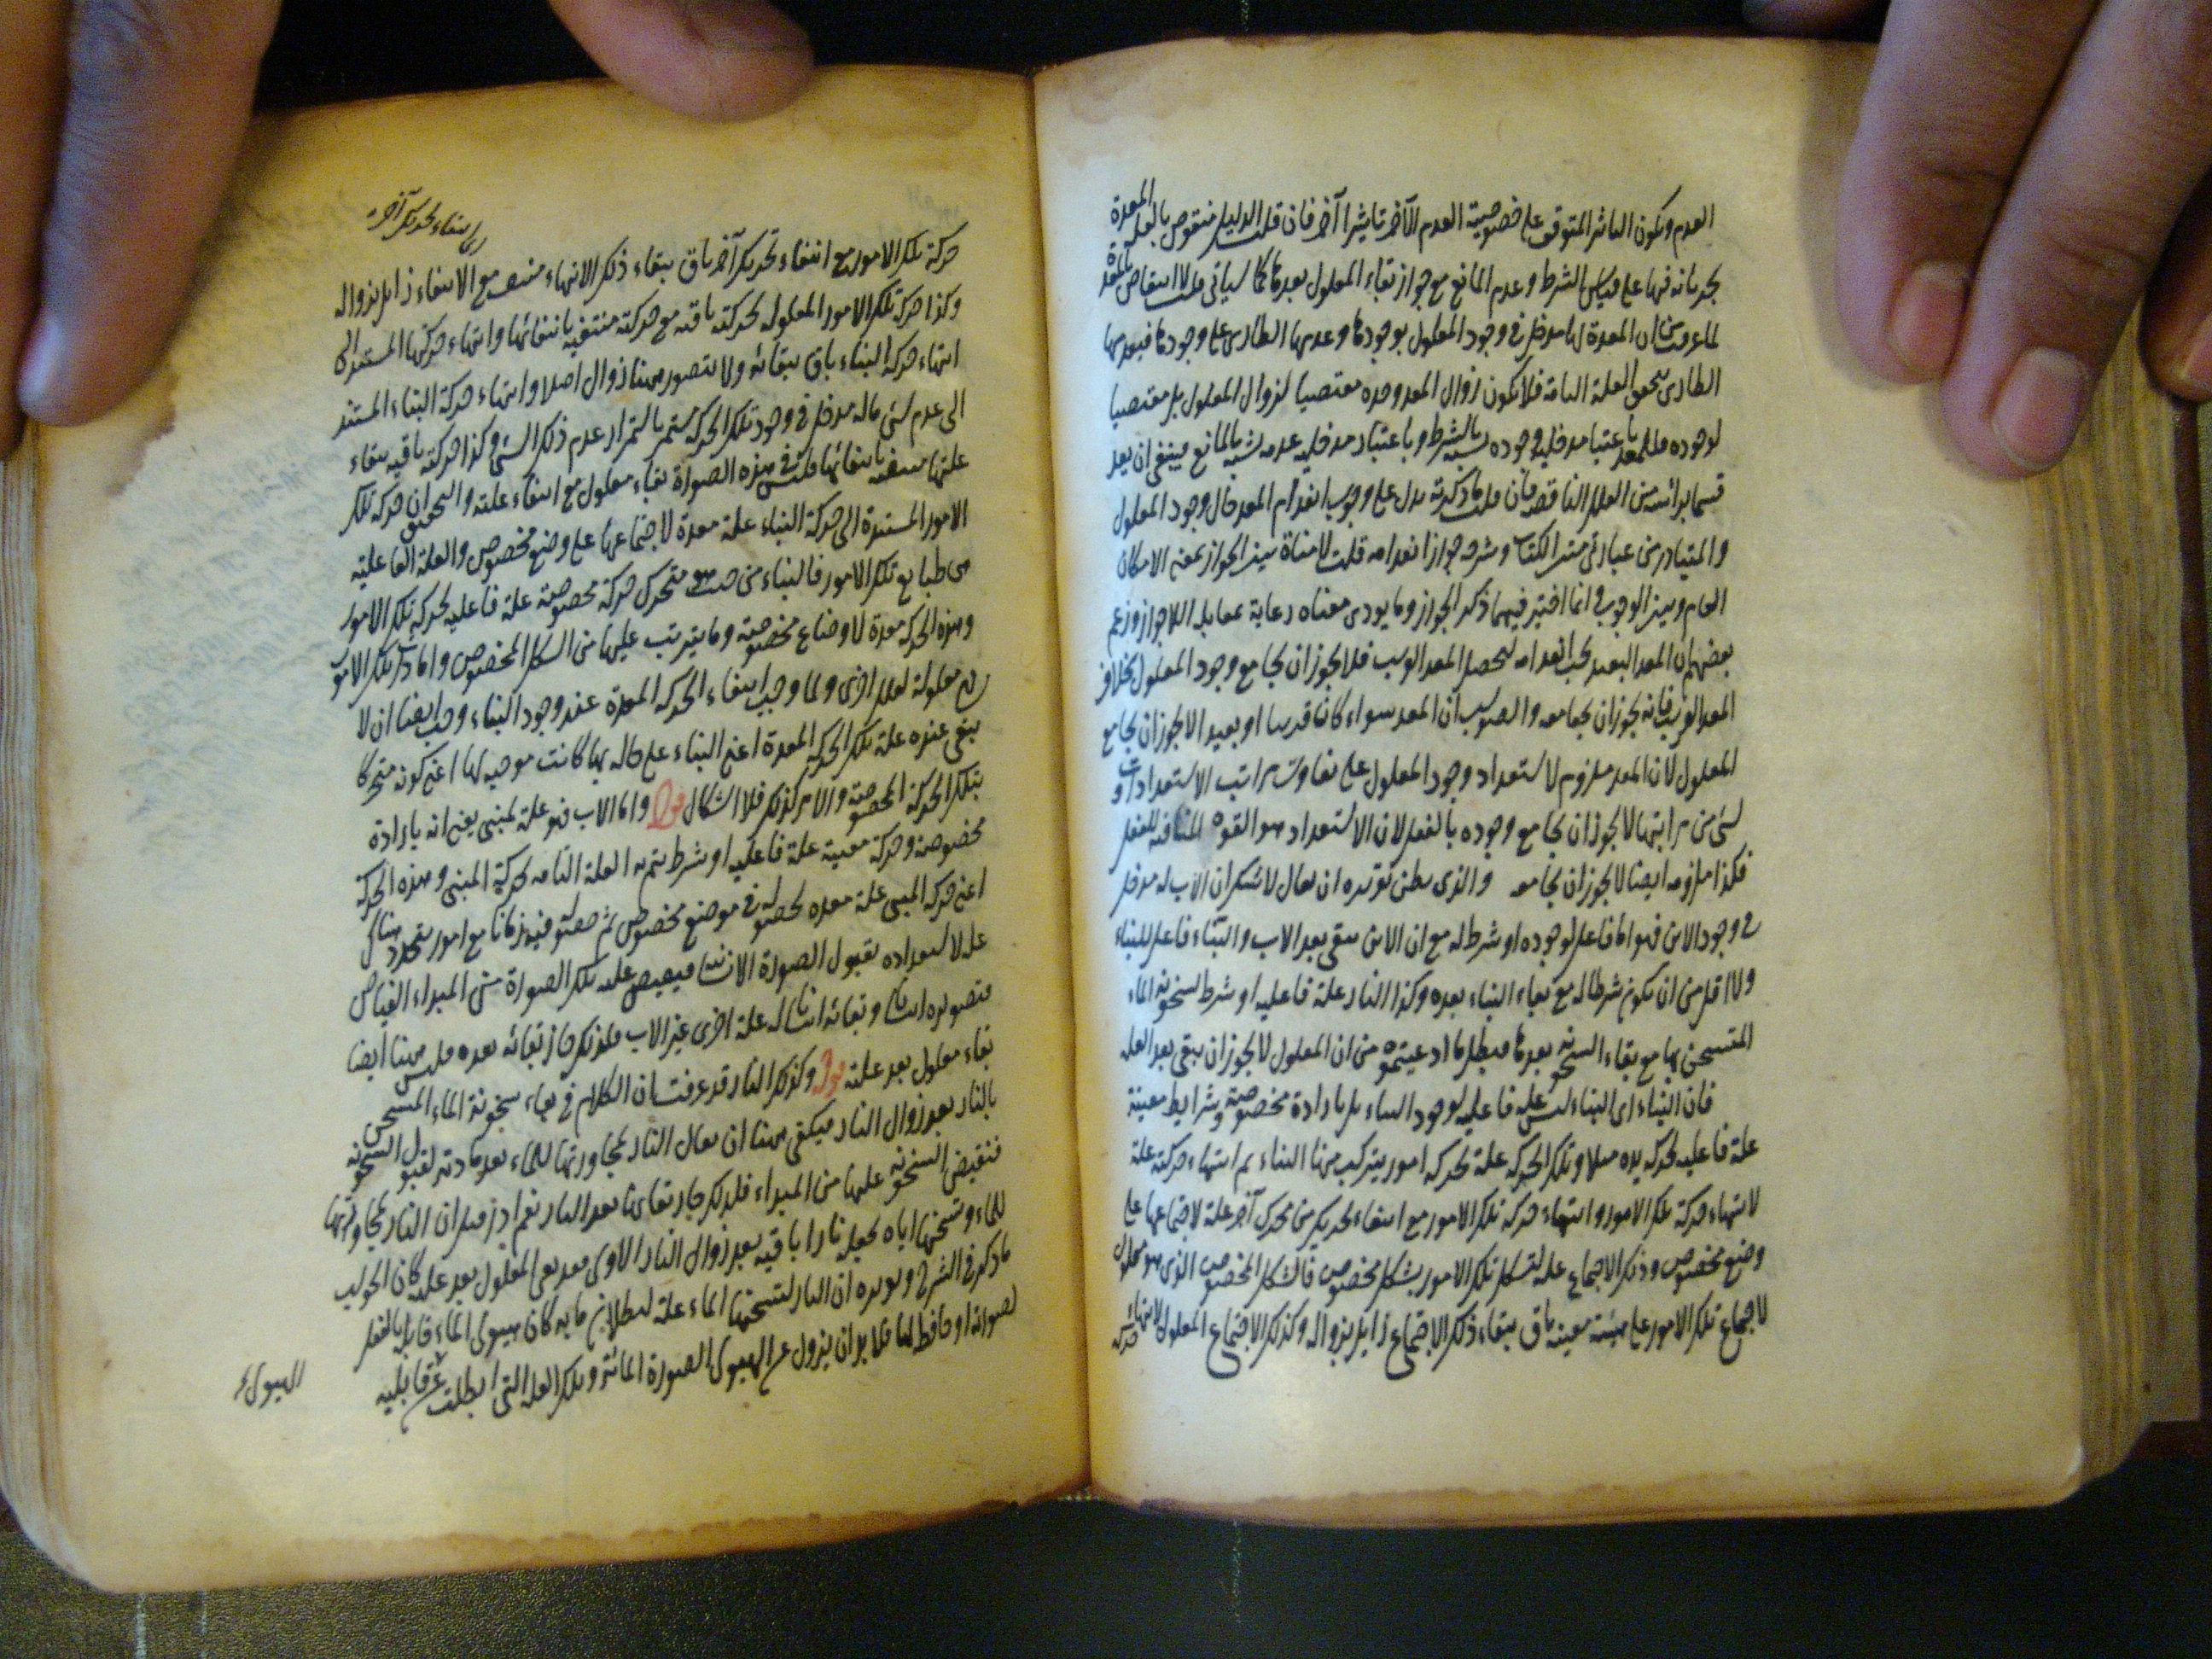 العدم ويكون التاثير المتوقف على خصوصية العدم الآخر تاثيرا آخر فان قلت الدليل منقوض بالعلة المعدة
بجريانه فيها على قياس الشرط وعدم المانع مع جواز بقاء المعلول بعدها كما سياتى قلت لا انتقاض بالمعدة
لما عرفت من ان المعدة لها مدخل فى وجود المعلول بوجودها وعدمها الطارى على وجودها فبعدمها
الطارى تحقق العلة التامة فلا يكون زوال المعد وحده مقتضيا لزوال المعلول بل مقتضيا
لوجوده فالمعد باعتبار مدخلية وجوده يشبه الشرط وباعتبار مدخلية عدمه يشبه المانع فينبغى ان يعد
قسما براسه من العلل الناقصة فان قلت ما ذكرته يدل على وجوب انعدام المعد حال وجود المعلول
والمتبادر من عبارتى متن الكتاب وشرحه جواز انعدامه قلت لا منافاة بين الجواز بمعنى الامكان
العام وبين الوجوب وانما اختير فيهما ذكر الجواز وما يودى معناه رعاية بمقابلة اللاجواز وزعم
بعضهم ان المعد البعيد يجب انعدامه ليحصل المعد القريب فلا يجوز ان يجامع وجود المعلول بخلاف
المعد القريب فانه يجوز ان يجامعه والصواب ان المعد سواء كان قريبا او بعيدا لا يجوز ان يجامع
المعلول لان المعد ملزوم لاستعداد وجود المعلول على تفاوت مراتب الاستعدادات و
شئ من مراتبها لا يجوز ان يجامع وجوده بالفعل لان الاستعداد هو القوه المنافية للفعل
فكذا ملزومه ايضا لا يجوز ان يجامعه والذى يظن تقريره ان يقال لا شك ان الاب له مدخل
فى وجود الابن فهو اما فاعل لوجوده او شرط له مع ان الابن يبقى بعد الاب والبناء فاعل للبناء
ولا اقل من ان يكون شرطا له مع بقاء البناء بعده وكذا النار علة فاعلية او شرط لسخونة الماء
المتسخن بها مع بقاء السخونة بعدها فبطل ما ادعيتموه من ان المعلول لا يجوز ان يبقى بعد العلة
فان البناء اى البناء ليس علة فاعلية لوجود البناء بل بارادة مخصوصة وشرايط معينة
علة فاعلية لحركة يده مثلا وتلك الحركة علة لحركة امور يتركب منها البناء ثم انتهاء حركته علة
لانتهاء حركة تلك الامور وانتهاء حركة تلك الامور مع انتفاء تحريك من محرك آخر علة لاجتماعها على
وضع مخصوص وذلك الاجتماع علة لتشكل تلك الامور بشكل مخصوص فالشكل المخصوص الذى هو معلول
لاجتماع تلك الامور على هيئة معينة باق ببقاء ذلك الاجتماع زايل بزواله وكذلك الاجتماع المعلول لانتهاء حركة
انتفاء تحريك آخر
حركة تلك الامور مع انتفاء تحريك آخر باق ببقاء ذلك الانتهاء منضم مع الانتفاء زايل بزواله
وكذا حركة تلك الامور المعلولة لحركته باقية مع حركته منتفية بانتفائها وانتهاء حركتها المستند الى
انتهاء حركة البناء باق ببقائه ولا يتصور ههنا زوال اصلا وانتهاء حركة البناء المستند
الى عدم شئ ماله مدخل فى وجود تلك الحركة مستمر باستمرار عدم ذلك الشئ وكذا حركته باقية ببقاء
علتها منتفية بانتفائها فليس فى هذه الصورة بقاء معلول مع انتفاء علته والتحقيق ان حركة تلك
الامور المستندة الى حركة البناء علة معدة لاجتماعها على وضع مخصوص والعلة الفاعلية
هى طبايع تلك الامور فالبناء من حيث هو متحرك حركة مخصوصة علة فاعلية لحركة تلك الامور
وهذه الحركة معدة لاوضاع مخصوصة وما يترتب عليها من الشكل المخصوص واما ذات تلك الامور
فهى معلولة لعلل اخرى ولما وجب انتفاء الحركة المعدة عند وجود البناء وجب ايضا ان لا
يبقى عنده علة تلك الحركة المعدة اعنى البناء على حاله بها كانت موجبة لها اعنى كونه متحركا
بتلك الحركة المخصوصة والامر كذلك فلا اشكال قوله واما الاب فهو علة لمبنى يعنى انه بارادة
مخصوصة وحركة معينة علة فاعلية او شرط يتم به العلة التامة لحركة المبنى وهذه الحركة
اعنى حركة المبنى علة معدة لحصوله فى موضع مخصوص ثم حصوله فيه زمانا مع امور يتجدد هناك
علة لاستعداده لقبول الصورة الانسانية فيفيض عليه تلك الصورة من المبداء الفياض
فتصويره انسانا وبقائه انسانا له علة اخرى غير الاب فلذلك جاز بقائه بعده فليس ههنا ايضا
بقاء معلول بعد علته قوله وكذلك النار قد عرفت ان الكلام فى بقاء سخونة الماء المتسخن
بالنار بعد زوال النار فيكفى ههنا ان يقال النار بمجاورتها للماء يعد مادته لقبول السخونة
فتفيض السخونة عليها من المبداء فلذلك جاز بقاؤها بعد النار نعم اذ قيل ان النار بمجاورتها
للماء وتسخنها اياه يجعله نارا باقية بعد زوال النار الاولى فقد بقى المعلول بعد علته كان الجواب
ما ذكر فى الشرح وتقريره ان النار لتسخنها الماء علة لبطلان ما به كان هيولى الماء قابلة بالفعل
لصورته او حافظ لها فلا بد ان يزول عن الهيولى الصورة المائية وتلك العلة التى ابطلت عن قابلية
الهيولى